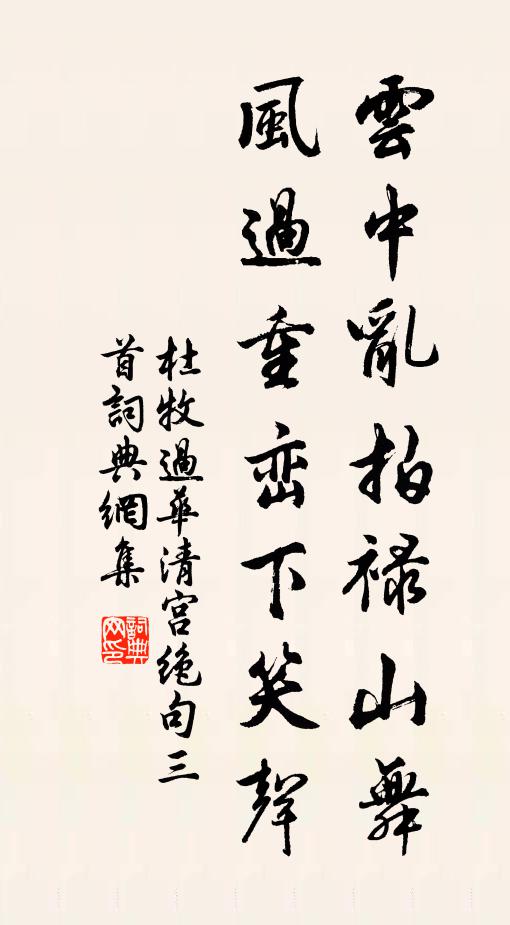 雲中亂拍祿山舞
風過重巒下笑聲
杜牧過華清宮絶句三
首詞典網集
詞典
网印